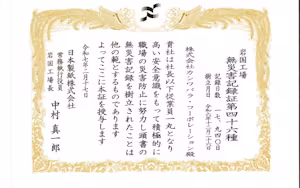 岩国工場
無災害記録証第四十六種
記録日数 一七、九四〇日
樹立月日 令和六年十二月三十一日
株式会社カシワバラ・コーポレーション殿
貴社は社長以下従業員一丸となり
高い安全意識をもって積極的に
職場の災害防止に努力し頭書の
無災害記録を樹立されたことは
他の範とするものであります
よってここに本証を授与します
令和七年二月十七日
日本製紙株式会社
常務執行役員
岩国工場長
中村真一郎